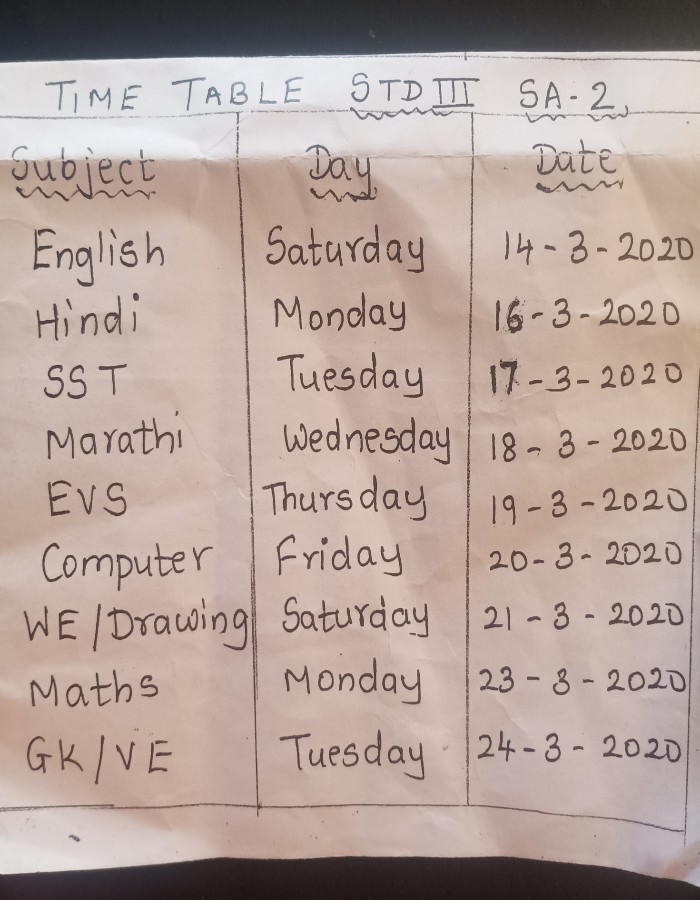 TIME TABLE STD III SA-2
Subject Day Date
English Saturday 14-3-2020
Hindi Monday 16-3-2020
SST Tuesday 17-3-2020
Marathi Wednesday 18-3-2020
EVS Thursday 19-3-2020
Computer Friday 20-3-2020
WE/Drawing Saturday 21-3-2020
Maths Monday 23-3-2020
GK/VE Tuesday 24-3-2020